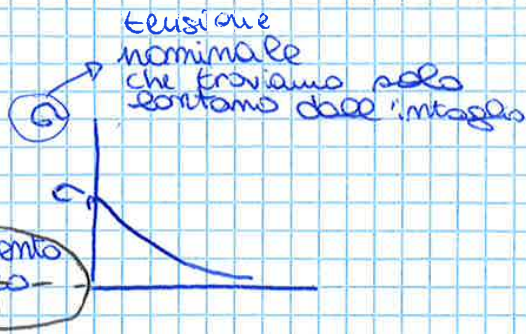 tensione
nominale
che troviamo solo
lontano dall'intaglio
σ
σ